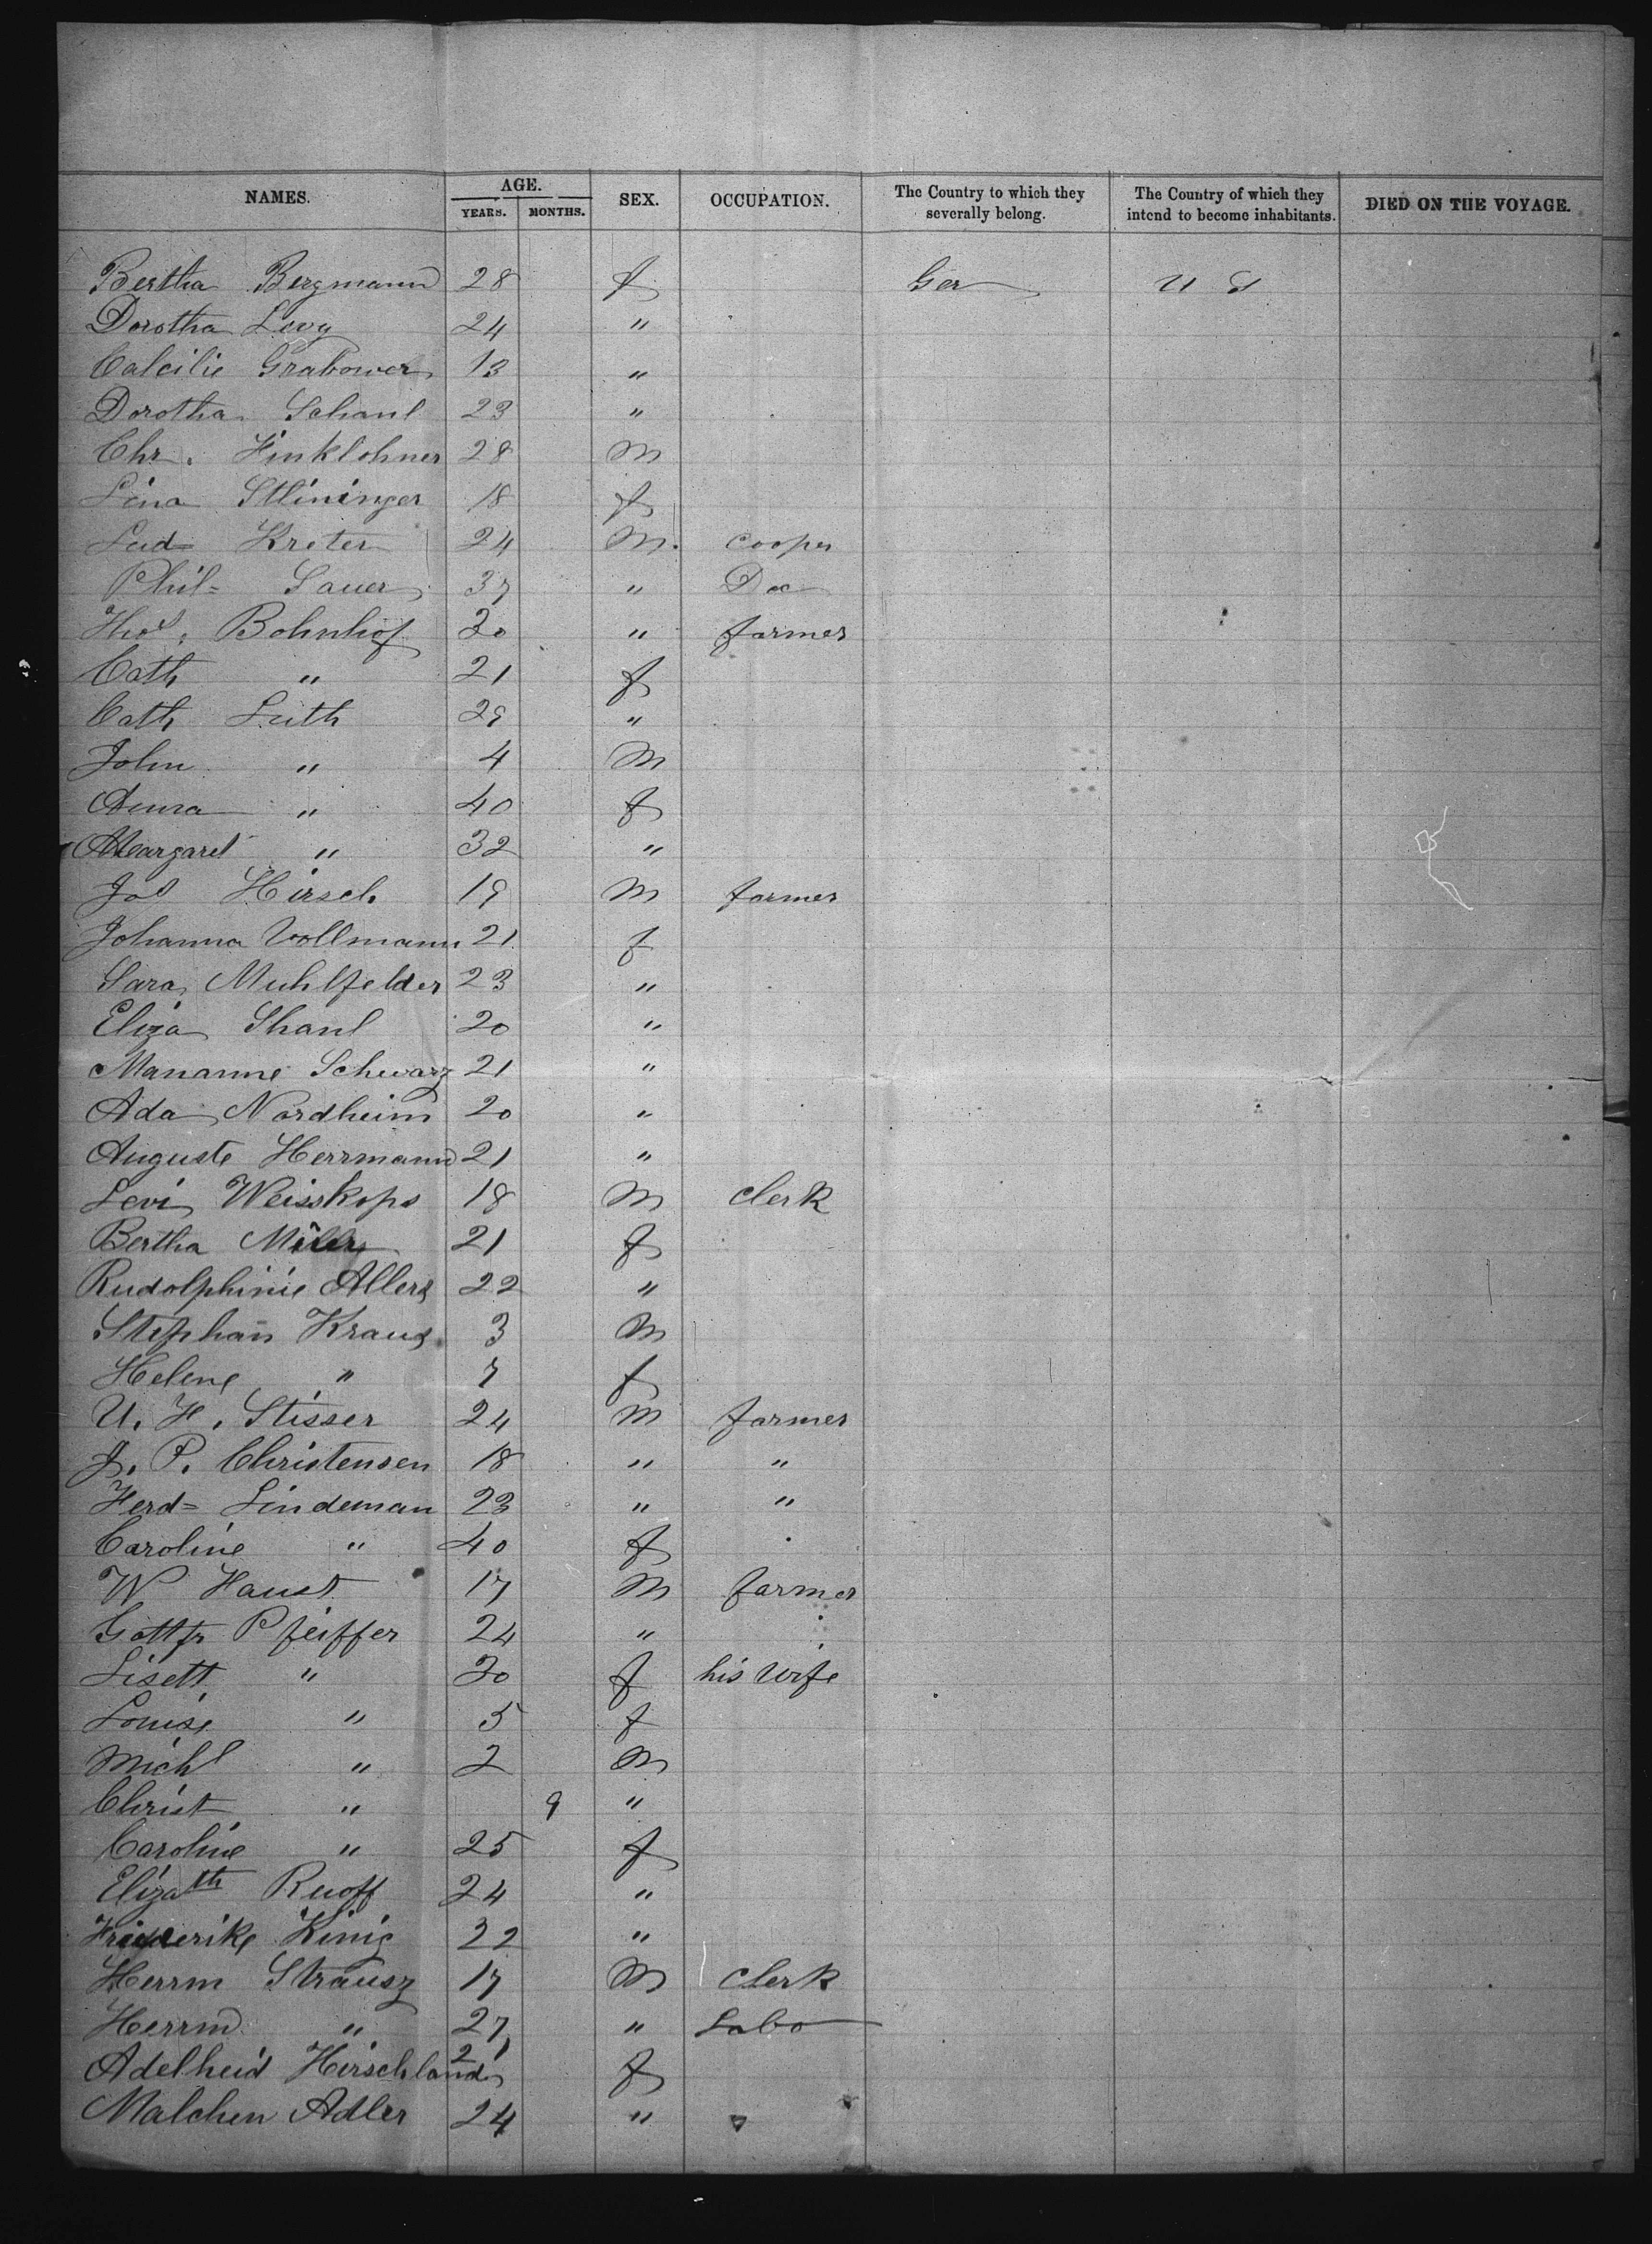 NAMES. AGE. SEX. OCCUPATION. The Country to which they severally belong. The Country of which they intend to become inhabitants. DIED ON THE VOYAGE.
YEARS. MONTHS.
Bertha Bergmann 28 f Ger U S
Dorotha Levy 24 "
Calcilie Grabower 13 "
Dorotha Schaul 23 "
Chr. Finklohner 28 M
Lina Stlininger 18 f
Lud= Kreter 24 M. Cooper
Phil= Sauer 37 " Do
Bohnhof 30 " farmer
Cath " 21 f
Cath Luth 29 "
John " 4 M
Anna " 40 f
Margaret " 32 "
Jos Hirsch 19 M farmer
Johanna Vollmann 21 f
Sara Muhlfelder 23 "
Eliza Shaul 20 "
Marianne Schwarz 21 "
Ada Nordheim 20 "
Auguste Herrmann 21 "
Levi Weisskops 18 M Clerk
Bertha 21 f
Rudolphinie Allers 22 "
Stephan Kraus 3 M
Helene " 7 f
U. H. Stisser 24 M farmer
J. P. Christensen 18 " "
Ferd= Lindeman 23 " "
Caroline " 40 f
W Haust 17 M farmer
Gottfr Pfeiffer 24 "
Lisett " 30 f his wife
Louise " 5 f
Michl " 2 M
Christ " 9 "
Caroline " 25 f
Elizath Ruoff 24 "
Friederike König 22 "
Herrm Strausz 17 M Clerk
Herrm " 27 " Labo
Adelheid Hirschland 21 f
Malchen Adler 24 "